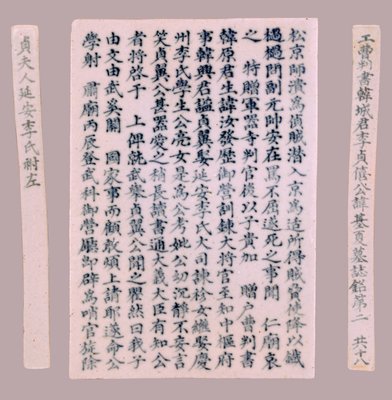 工曹判書韓城君李貞僖公諱基夏墓誌銘第二 共十八
松京師潰爲賊潛入京爲适所得賊脅使降以鐵
檛檛問副元帥安在罵不屈遂死之事聞 仁廟哀
之 特贈軍器寺判官後以子貴加 贈戶曹判書
韓原君生諱汝發歷御營訓鍊大將官至知中樞府
事韓興君諡貞翼娶延安李氏大司諫袗女繼娶慶
州李氏學生公亮女是爲公考妣公幼沉靜不妄言
笑貞翼公甚器愛之稍長讀書通大義大臣有知公
者將啓 上俾就武擧貞翼公聞之瞿然曰我子
由文由武奚關 國家事而顧敢煩上請耶遂命公
學射 肅廟丙辰登武科御營廳卽辟爲哨官旋除
貞夫人延安李氏祔左